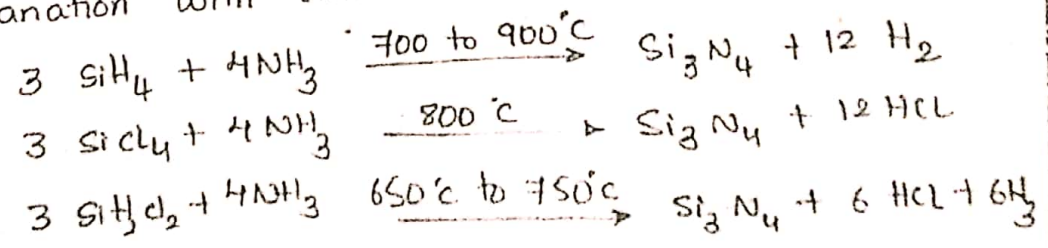 anation with
3 SiH4 + 4NH3 700 to 900°C Si3 N4 + 12 H2
3 SiCl4 + 4 NH3 800 °C Si3 N4 + 12 HCL
3 SiH2 cl2 + 4NH3 650°c to 750°c Si3 N4 + 6 HCL + 6H2